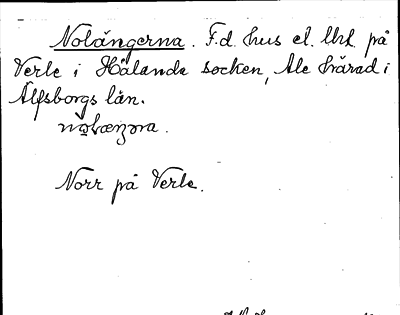 Nolängerna. F.d. hus el. lht. på
Verle i Hålanda socken, Ale härad i
Älfsborgs län.

Norr på Verle.